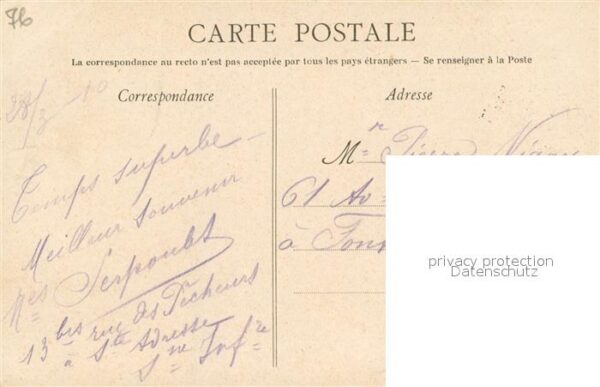 76
CARTE POSTALE
La correspondance au recto n'est pas acceptée par tous les pays étrangers — Se renseigner à la Poste
Correspondance
Adresse
28/3-10
Temps superbe
Meilleur souvenir
13 bis rue des Pêcheurs
à Ste Adresse
Sne Infre
Mr Pierre
61 Av
à
privacy protection
Datenschutz